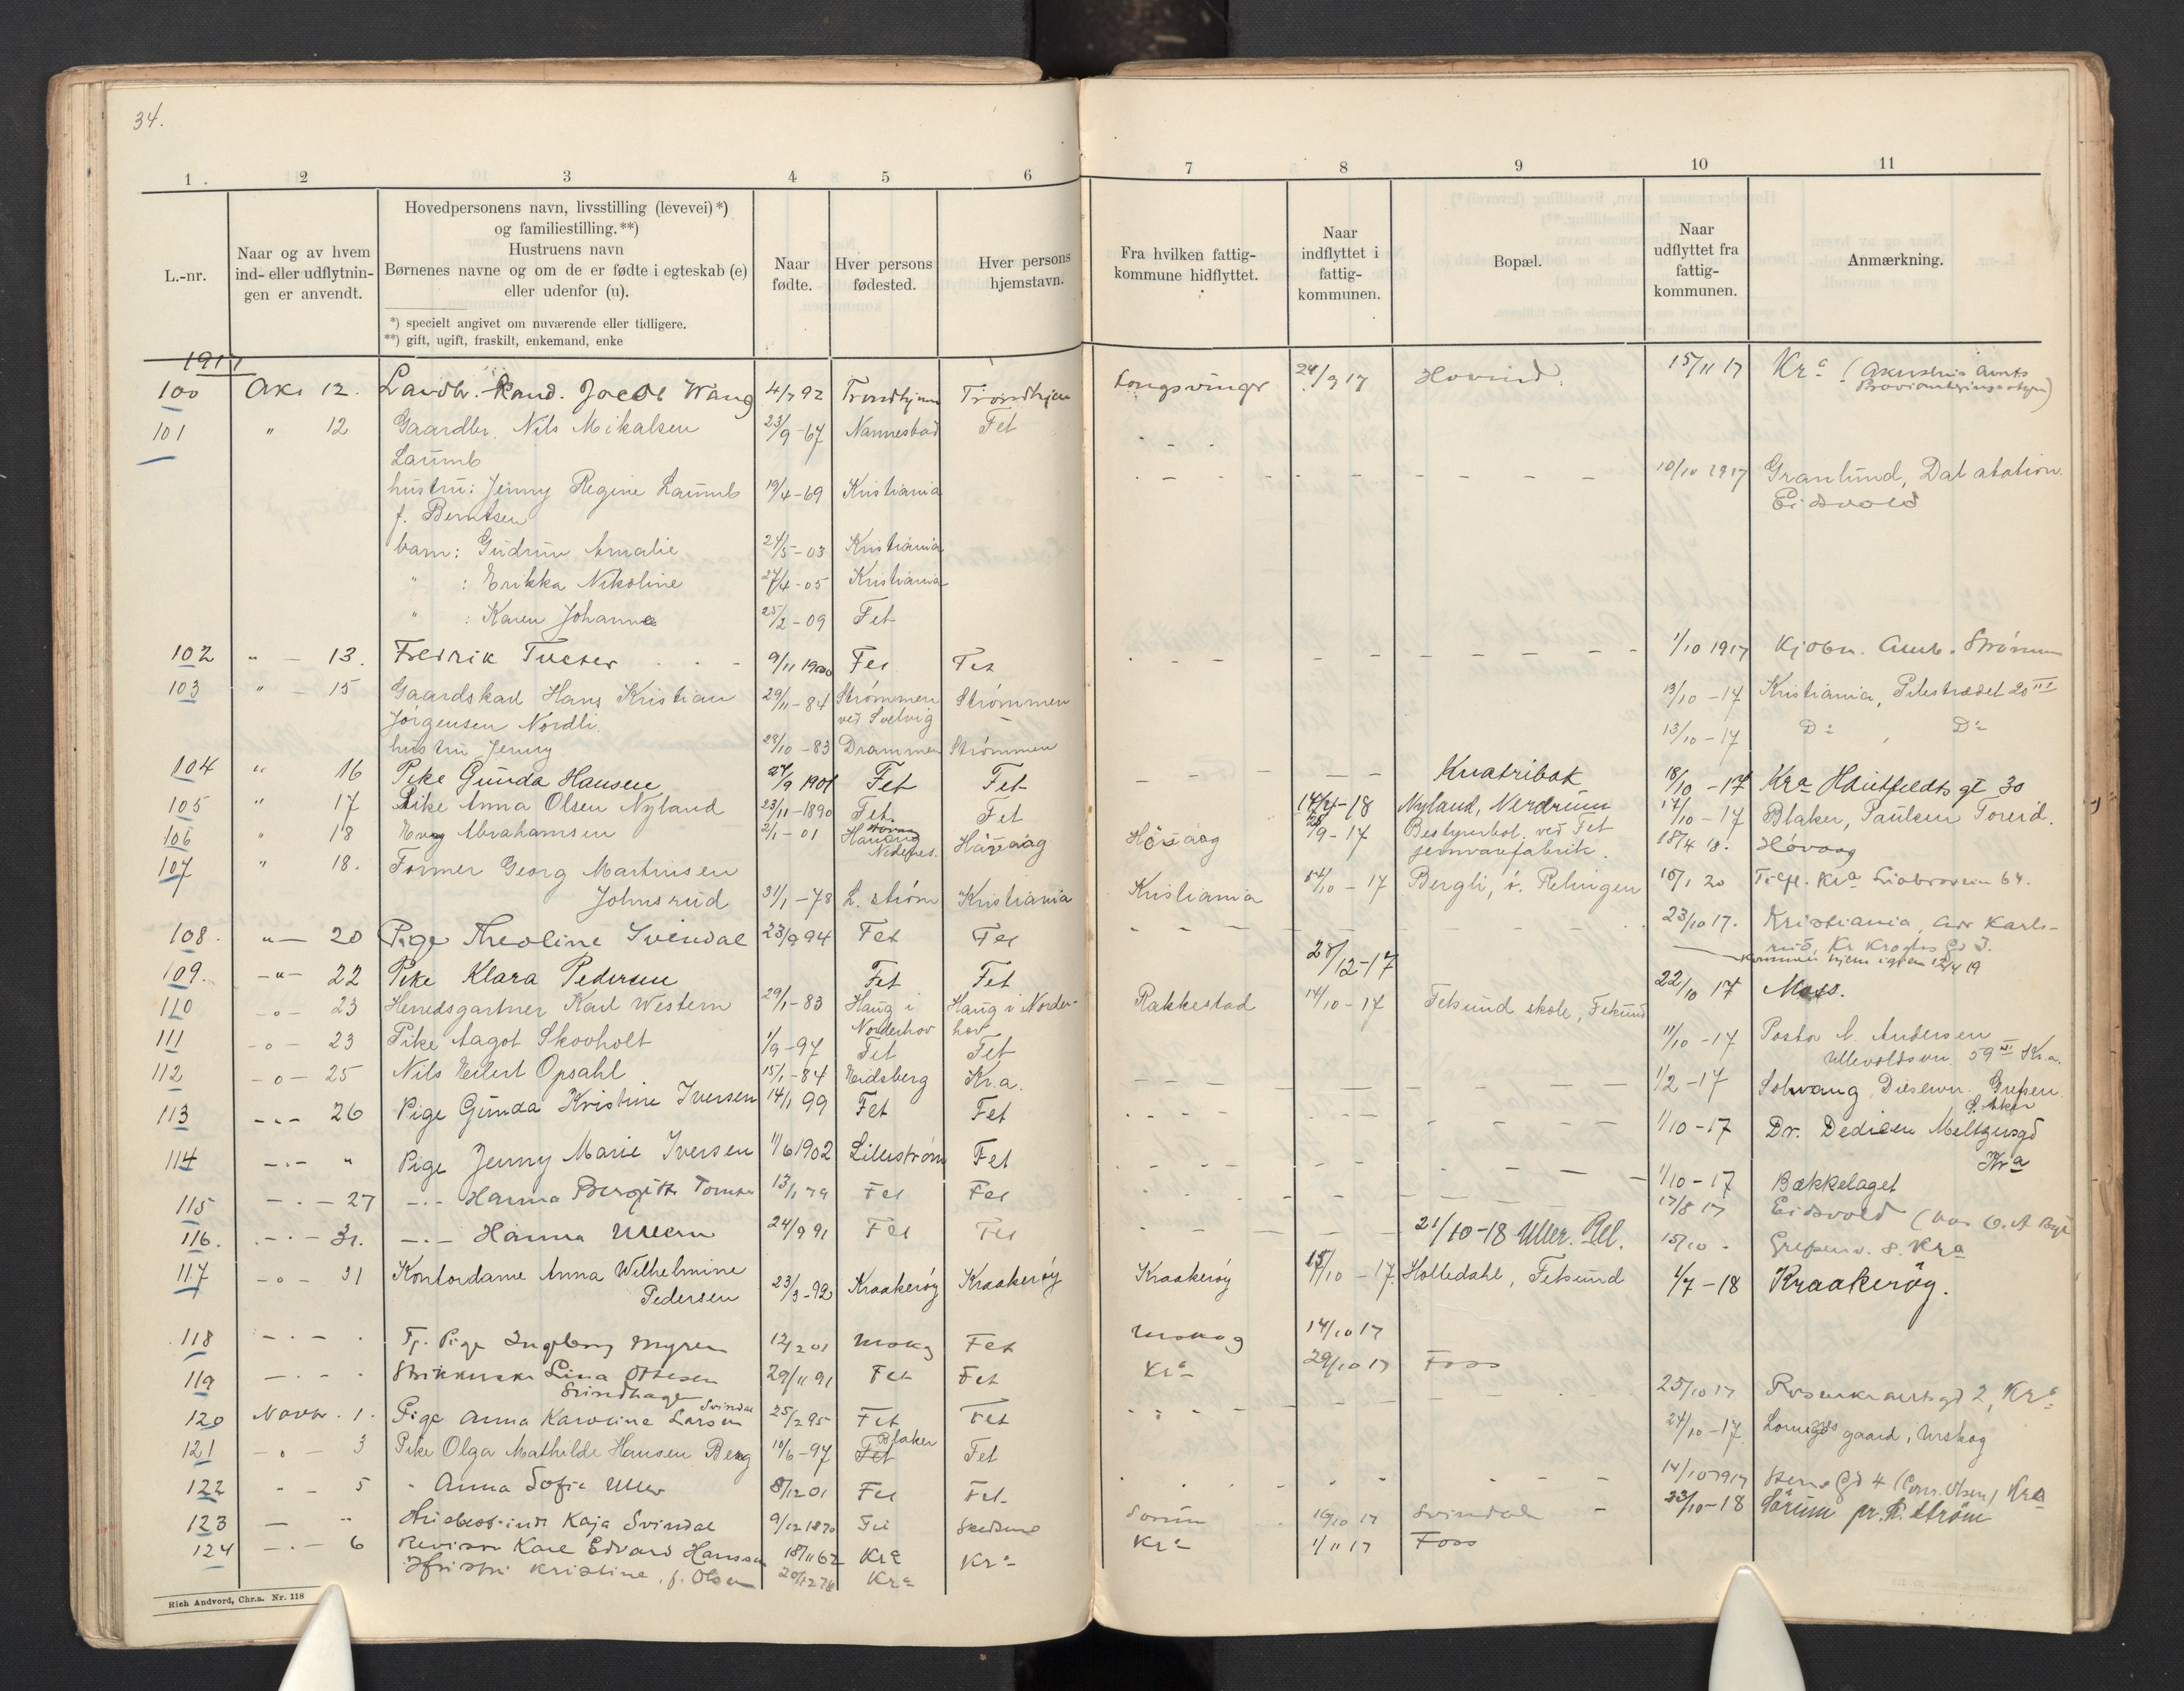 34.
1. 2 3 4 5 6 7 8 9 10 11
L.-nr.
Naar og av hvem
ind- eller udflytnin-
gen er anvendt.
Hovedpersonens navn, livsstilling (levevei) *)
og familiestilling. **)
Hustruens navn
Børnenes navne og om de er fødte i egteskab (e)
eller udenfor (u).
*) specielt angivet om nuværende eller tidligere.
**) gift, ugift, fraskilt, enkemand, enke
Naar
fødte.
Hver persons
fødested.
Hver persons
hjemstavn.
Fra hvilken fattig-
kommune hidflyttet.
Naar
indflyttet i
fattig-
kommunen.
Bopæl.
Naar
udflyttet fra
fattig-
kommunen.
Anmærkning.
1917
100 Okt 12. Landbr. Kand. Jacob Wang 4/7 92 Trondhjem Trondhjem Kongsvinger 24/9 17 Hovind. 15/11 17 Kra (Akershus Amts
Provianteringsstyre)
101 " 12 Gaardbr. Nils Mikalsen 23/9-67 Nannestad Fet - - -
Laumb 10/10 1917 Granlund, Dal station
hustru: Jenny Regine Laumb 19/4-69 Kristiania Eidsvold
f. Berntsen
barn: Gudrun Amalie 24/5-03 Kristiania
" : Erikka Nikoline 27/4-05 Kristiania
" : Karen Johanne 25/2-09 Fet
102 " - 13. Fredrik Tveter 9/11 1900 Fet Fet 1/10 1917 Kjøbn. Amb. Strømm
103 " - 15 Gaardskarl Hans Kristian 29/11-84 Strømmen Strømmen 13/10-17 Kristiania, Pilestrædet 20 III
Jørgensen Nordli ved Svelvig
hustru Jenny 28/10-83 Drammen Strømmen 13/10-17 Do Do
104 " 16 Pike Gunda Hansen 27/9 1901 Fet Fet - - - Knatribak 18/10-17 Kra Huitfeldts gt 30
105 " 17 Pike Anna Olsen Nyland 23/11-1890 Fet. Fet 14/4-18 Nyland, Nerdrum 17/10-17 Blaker, Paulsen Toreid.
106 " 18 Evag Abrahamsen 2/1-01 Høvaag Høvaag 28/9-17 Bestyrerbol. ved Fet 18/4 18. Høvaag
Nedenes. jernvarefabrik.
107 " 18. Former Georg Martinsen
Johnsrud 31/1-78 L. strøm Kristiania Kristiania 14/10-17 Bergli, v. Relingen 16/1 20 Tilfl. Kra Liabroveien 64.
108. " - 20 Pige Theoline Svendal 23/9 94 Fet Fet - - - 23/10 17. Kristiania, adr Karls-
rud, Kr Kroghs Gd 3.
kommen hjem igjen 12/4 19
109. - " - 22 Pike Klara Pedersen Fet Fet 28/12-17 22/10 17 Moss.
110 - o - 23 Herredsgartner Karl Western 29/1-83 Haug i Haug i Norder- Rakkestad 14/10-17 Fetsund skole, Fetsund
Norderhov hov
111 - o - 23 Pike Aagot Skovholt 1/9-97 Fet Fet 11/10-17 Pastor N. Andersen
Ullevoldsvn. 59 III Kr.a.
112 - o - 25 Nils Eilert Opsahl 15/1-84 Eidsberg Kr.a. 1/2-17 Solvang, Dieselvn. Grefsen
Ø. Aker
113 - " - 26 Pige Gunda Kristine Iversen 14/1 99 Fet Fet 1/10-17 Dr. Dedicen Meltzersgd
Kra
114 - . - " Pige Jenny Marie Iversen 11/6 1902 Lillestrøm Fet 1/10-17 Bækkelaget
115 - . - 27 - . - Hanna Bergitte Tomter 13/1 79 Fet Fet 17/8 17 Eidsvold (hos O. A Bye
116. - . - 31. - . - Hanna Ullern 24/9 91 Fet Fet 21/10-18 Uller. Rel. 15/10 - Grefsenv. 8. Kra
117 - o - 31 Kontordame Anna Wilhelmine
Pedersen 23/3-92 Kraakerøy Kraakerøy Kraakerøy 15/10-17. Holtedahl, Fetsund 1/7-18 Kraakerøy.
118 - . - . Tj. Pige Ingeborg Myren 12/2 01 Urskog Fet Urskog 14/10 17
119 - . - . Strikkerske Lina Ottesen 29/11 91 Fet Fet Kra 29/10 17 Foss
Svindhagen
120 Novbr. 1. Pige Anna Karoline Larsen Svindal 25/2 95 Fet Fet 25/10 17 Rosenkrantzgd 2, Kra
121 - o - 3 Pike Olga Mathilde Hansen Berg 10/6-97 Fet Blaker Fet 24/10-17. gaard, Urskog
122 " - 5 - Anna Sofie Uller 8/12 01 Fet Fet. 14/10 1917 Stens Gd 4 (Conr. Olsen) Kra
123 - " Kaja Svindal 9/12 1870 Fet Skedsmo Sørum 16/10 17 Svindal - 23/10-18 Sørum pr. K. strøm
124 - . - 6 Revisor Karl Edvard Hansen 18/11 62 Kra Kra Kra 1/11 17 Foss
Hustru Kristine, f. Olsen 20/12 78 Kra
Rich Andvord, Chr.a. Nr. 118